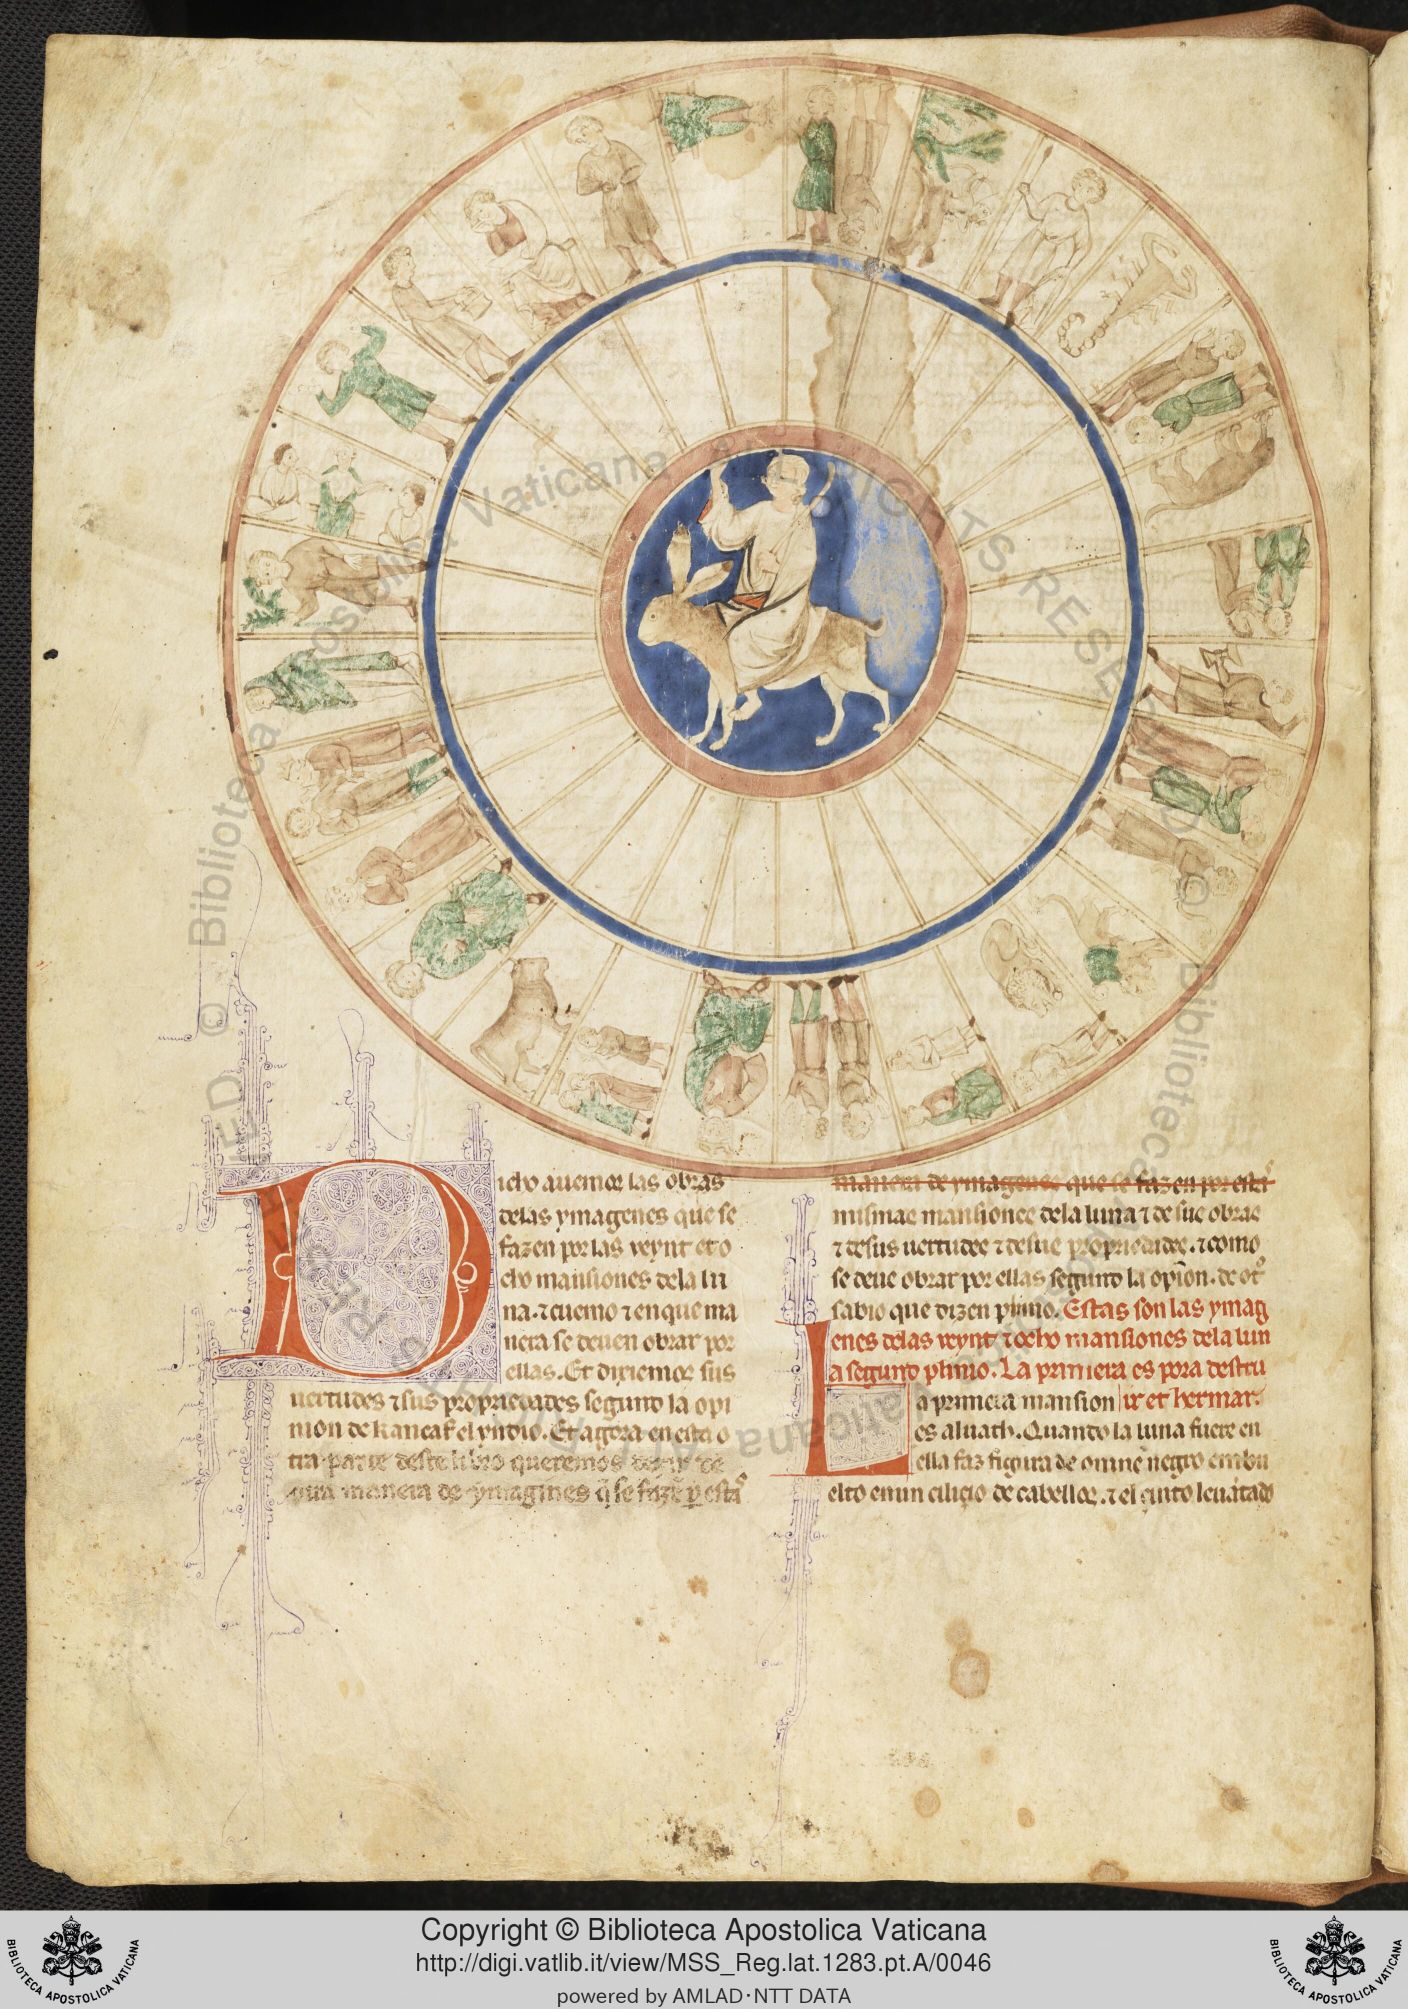 Dicho auemos las obras
delas ymagenes que se
fazen por las veynt et o
cho mansiones dela lu
na. ⁊ cuemo ⁊ en que ma
nera se deuen obrar por
ellas. Et dixiemos sus
uertudes ⁊ sus propriedades segund la opi
nion de kancaf el yndio. Et agora en esta o
tra parte deste libro queremos dezir de
otra manera de ymagines q̃ se fazẽ ꝑ estas
manera de ymagenes que se fazen por estas
mismas mansiones dela luna ⁊ de sus obras
⁊ de sus uertudes ⁊ de sus propriedades. ⁊ como
se deue obrar por ellas segund la opiñon. de otº
sabio que dizen plinio. Estas son las ymag
enes delas veynt ⁊ ocho mansiones dela lun
a segund plinio. La primera es pora destru
La primera mansion ir et hermar.
es alnath. Quando la luna fuere en
ella faz figura de omne negro embu
elto en un cilicio de cabellos. ⁊ el çinto leuãtado
© Biblioteca Apostolica Vaticana ALL RIGHTS RESERVED
Copyright © Biblioteca Apostolica Vaticana
http://digi.vatlib.it/view/MSS_Reg.lat.1283.pt.A/0046
powered by AMLAD･NTT DATA
BIBLIOTECA APOSTOLICA VATICANA
BIBLIOTECA APOSTOLICA VATICANA